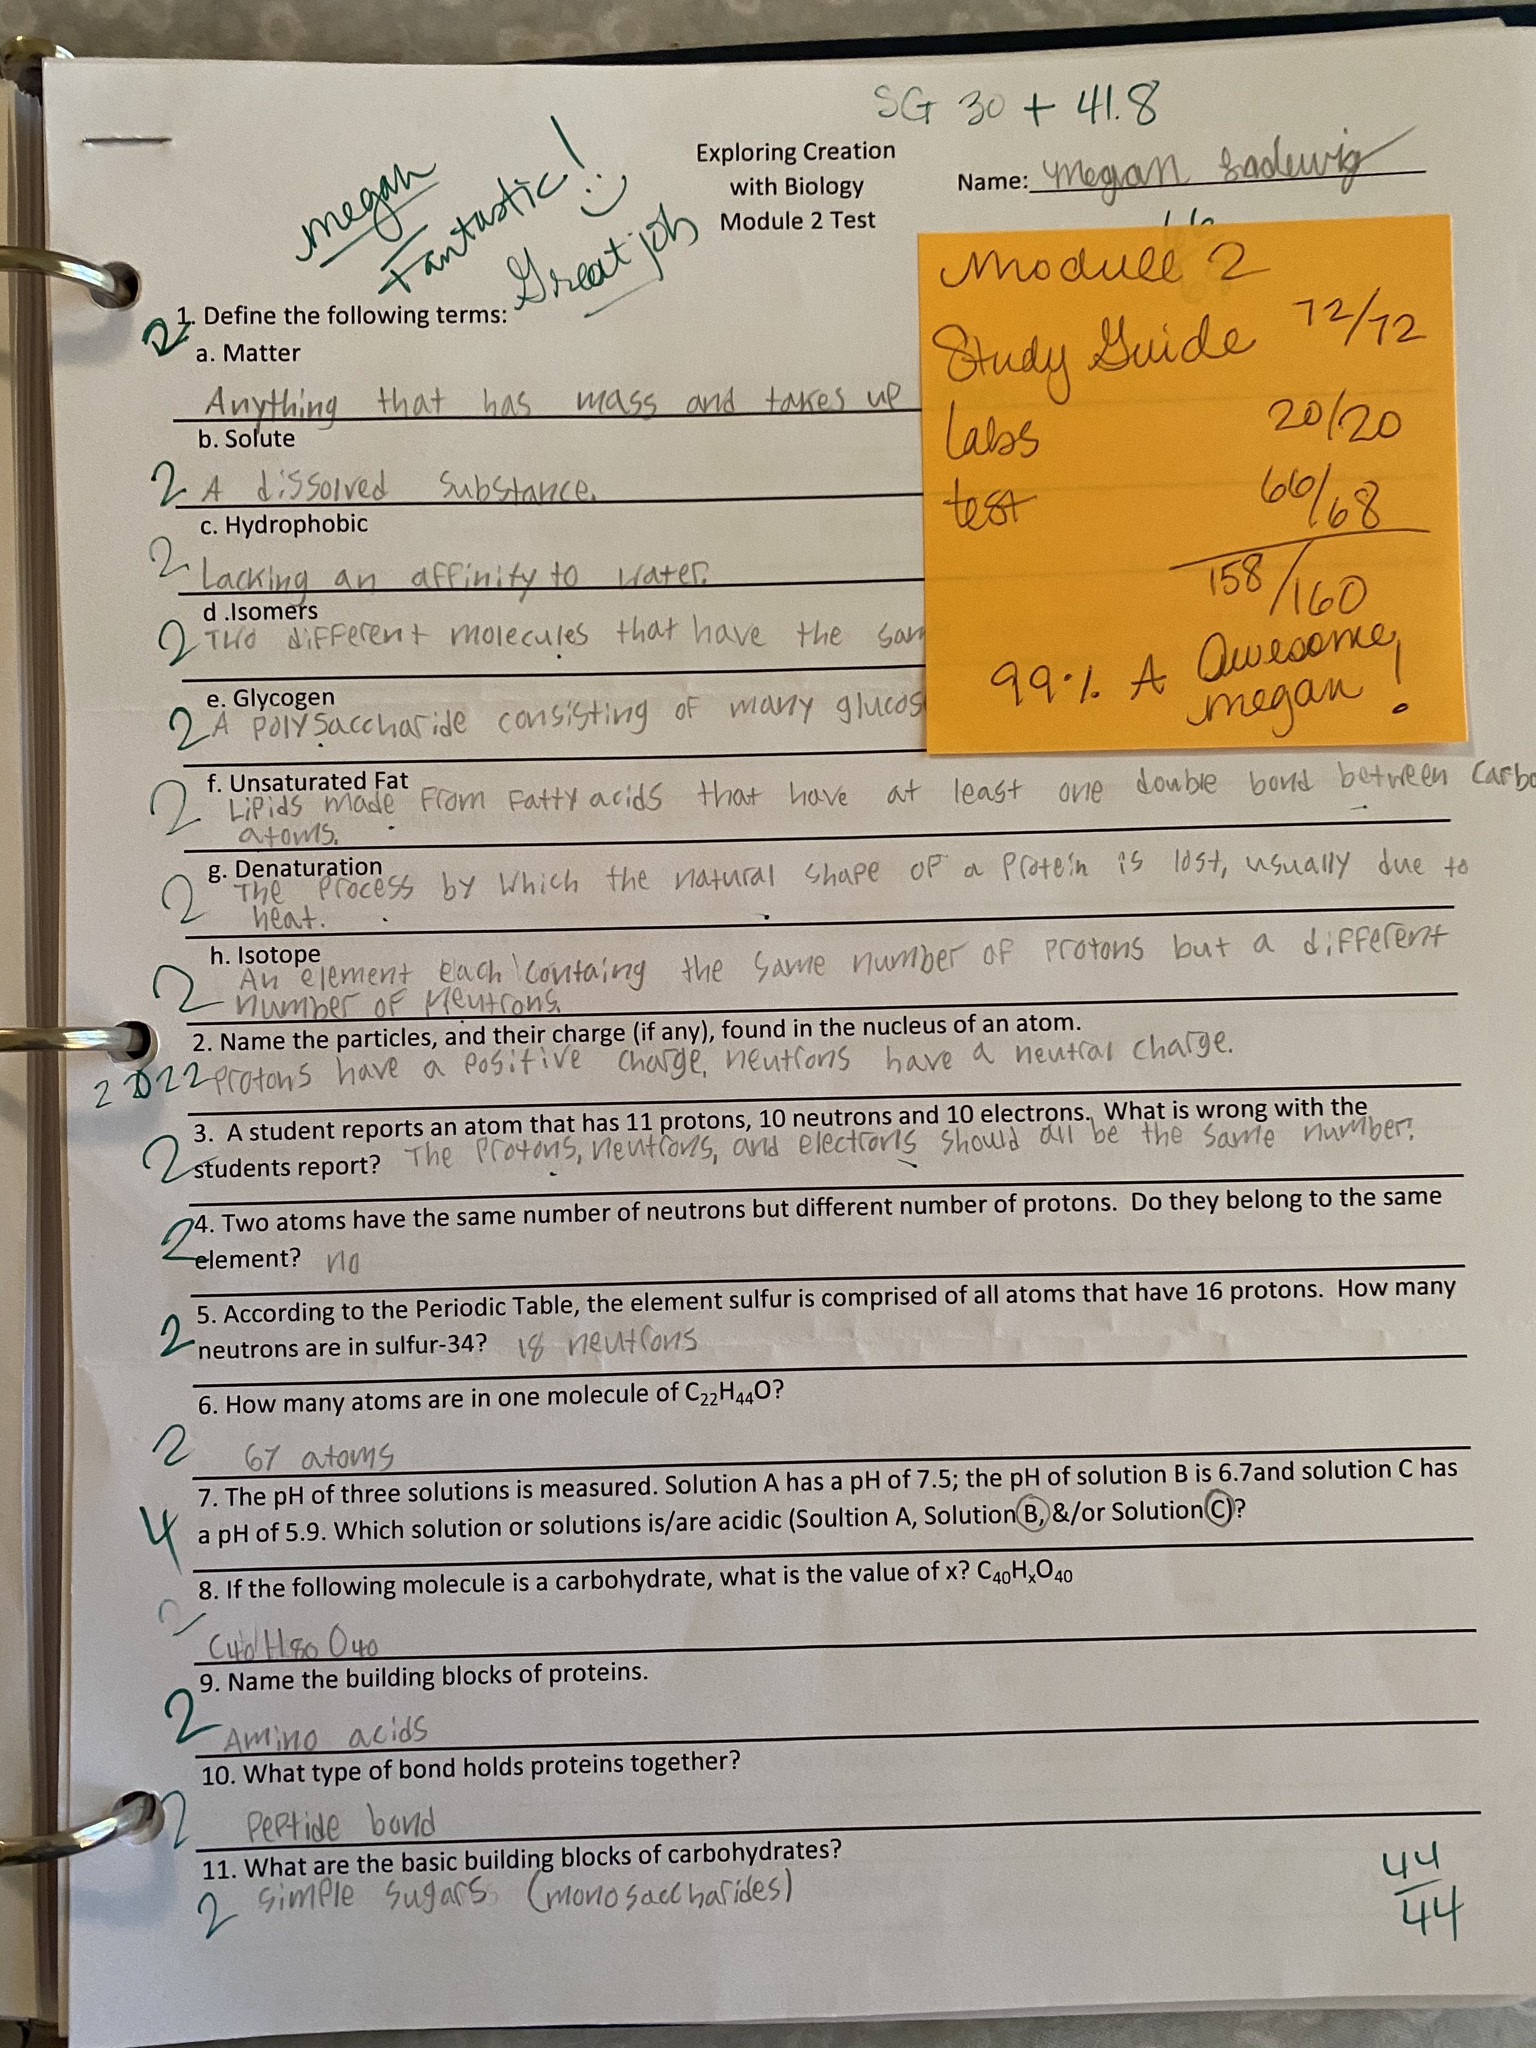 SG 30 + 41.8
Exploring Creation
with Biology
Module 2 Test
Name: Megan
Megan
Fantastic!
Great job
Module 2
Study Guide 72/72
Labs 20/20
test 66/68
158/160
99% A Awesome,
Megan!
2 1. Define the following terms:
a. Matter
Anything that has mass and takes up
b. Solute
2 A dissolved substance.
c. Hydrophobic
2 Lacking an affinity to water.
d .Isomers
2 Two different molecules that have the
e. Glycogen
2 A polysaccharide consisting of many
f. Unsaturated Fat
2 Lipids made from fatty acids that have at least one double bond between
atoms.
g. Denaturation
2 The process by which the natural shape of a protein is lost, usually due to
heat.
h. Isotope
2 An element each containg the same number of protons but a different
number of neutrons.
2. Name the particles, and their charge (if any), found in the nucleus of an atom.
2 2 2 2 protons have a positive charge, neutrons have a neutral charge.
3. A student reports an atom that has 11 protons, 10 neutrons and 10 electrons. What is wrong with the
2 students report? The protons, neutrons, and electrons should all be the same number.
2 4. Two atoms have the same number of neutrons but different number of protons. Do they belong to the same
element? no
5. According to the Periodic Table, the element sulfur is comprised of all atoms that have 16 protons. How many
2 neutrons are in sulfur-34? 18 neutrons
6. How many atoms are in one molecule of C22H44O?
2 67 atoms
7. The pH of three solutions is measured. Solution A has a pH of 7.5; the pH of solution B is 6.7and solution C has
4 a pH of 5.9. Which solution or solutions is/are acidic (Soultion A, Solution B, &/or Solution C)?
8. If the following molecule is a carbohydrate, what is the value of x? C40HxO40
2 C40H80O40
9. Name the building blocks of proteins.
2 Amino acids
10. What type of bond holds proteins together?
2 Peptide bond
11. What are the basic building blocks of carbohydrates?
2 simple sugars (monosaccharides)
44
44